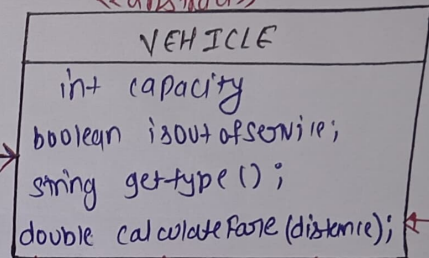 VEHICLE
int capacity
boolean isOutofservice;
string gettype();
double calculateFare(distance);